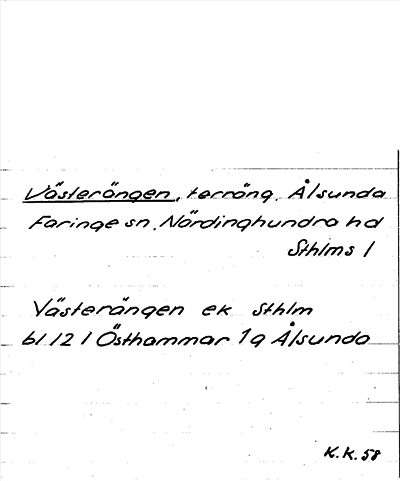 Västerängen, terräng. Ålsunda
Faringe sn. Närdinghundra hd
Sthlms l
Västerängen ek Sthlm
bl 12 l Östhammar 1q Ålsunda
K.K. 58